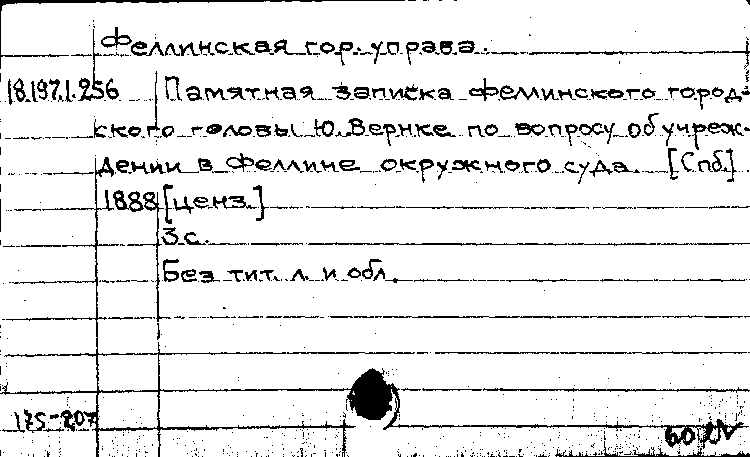 Феллинская гор. управа.
18.197.1.256 Памятная записка феллинского город-
ского головы Ю. Вернке по вопросу об учреж-
дении в Феллине окружного суда. [Спб.]
1888 [ценз.]
3 с.
Без тит. л. и обл.
175-207
60